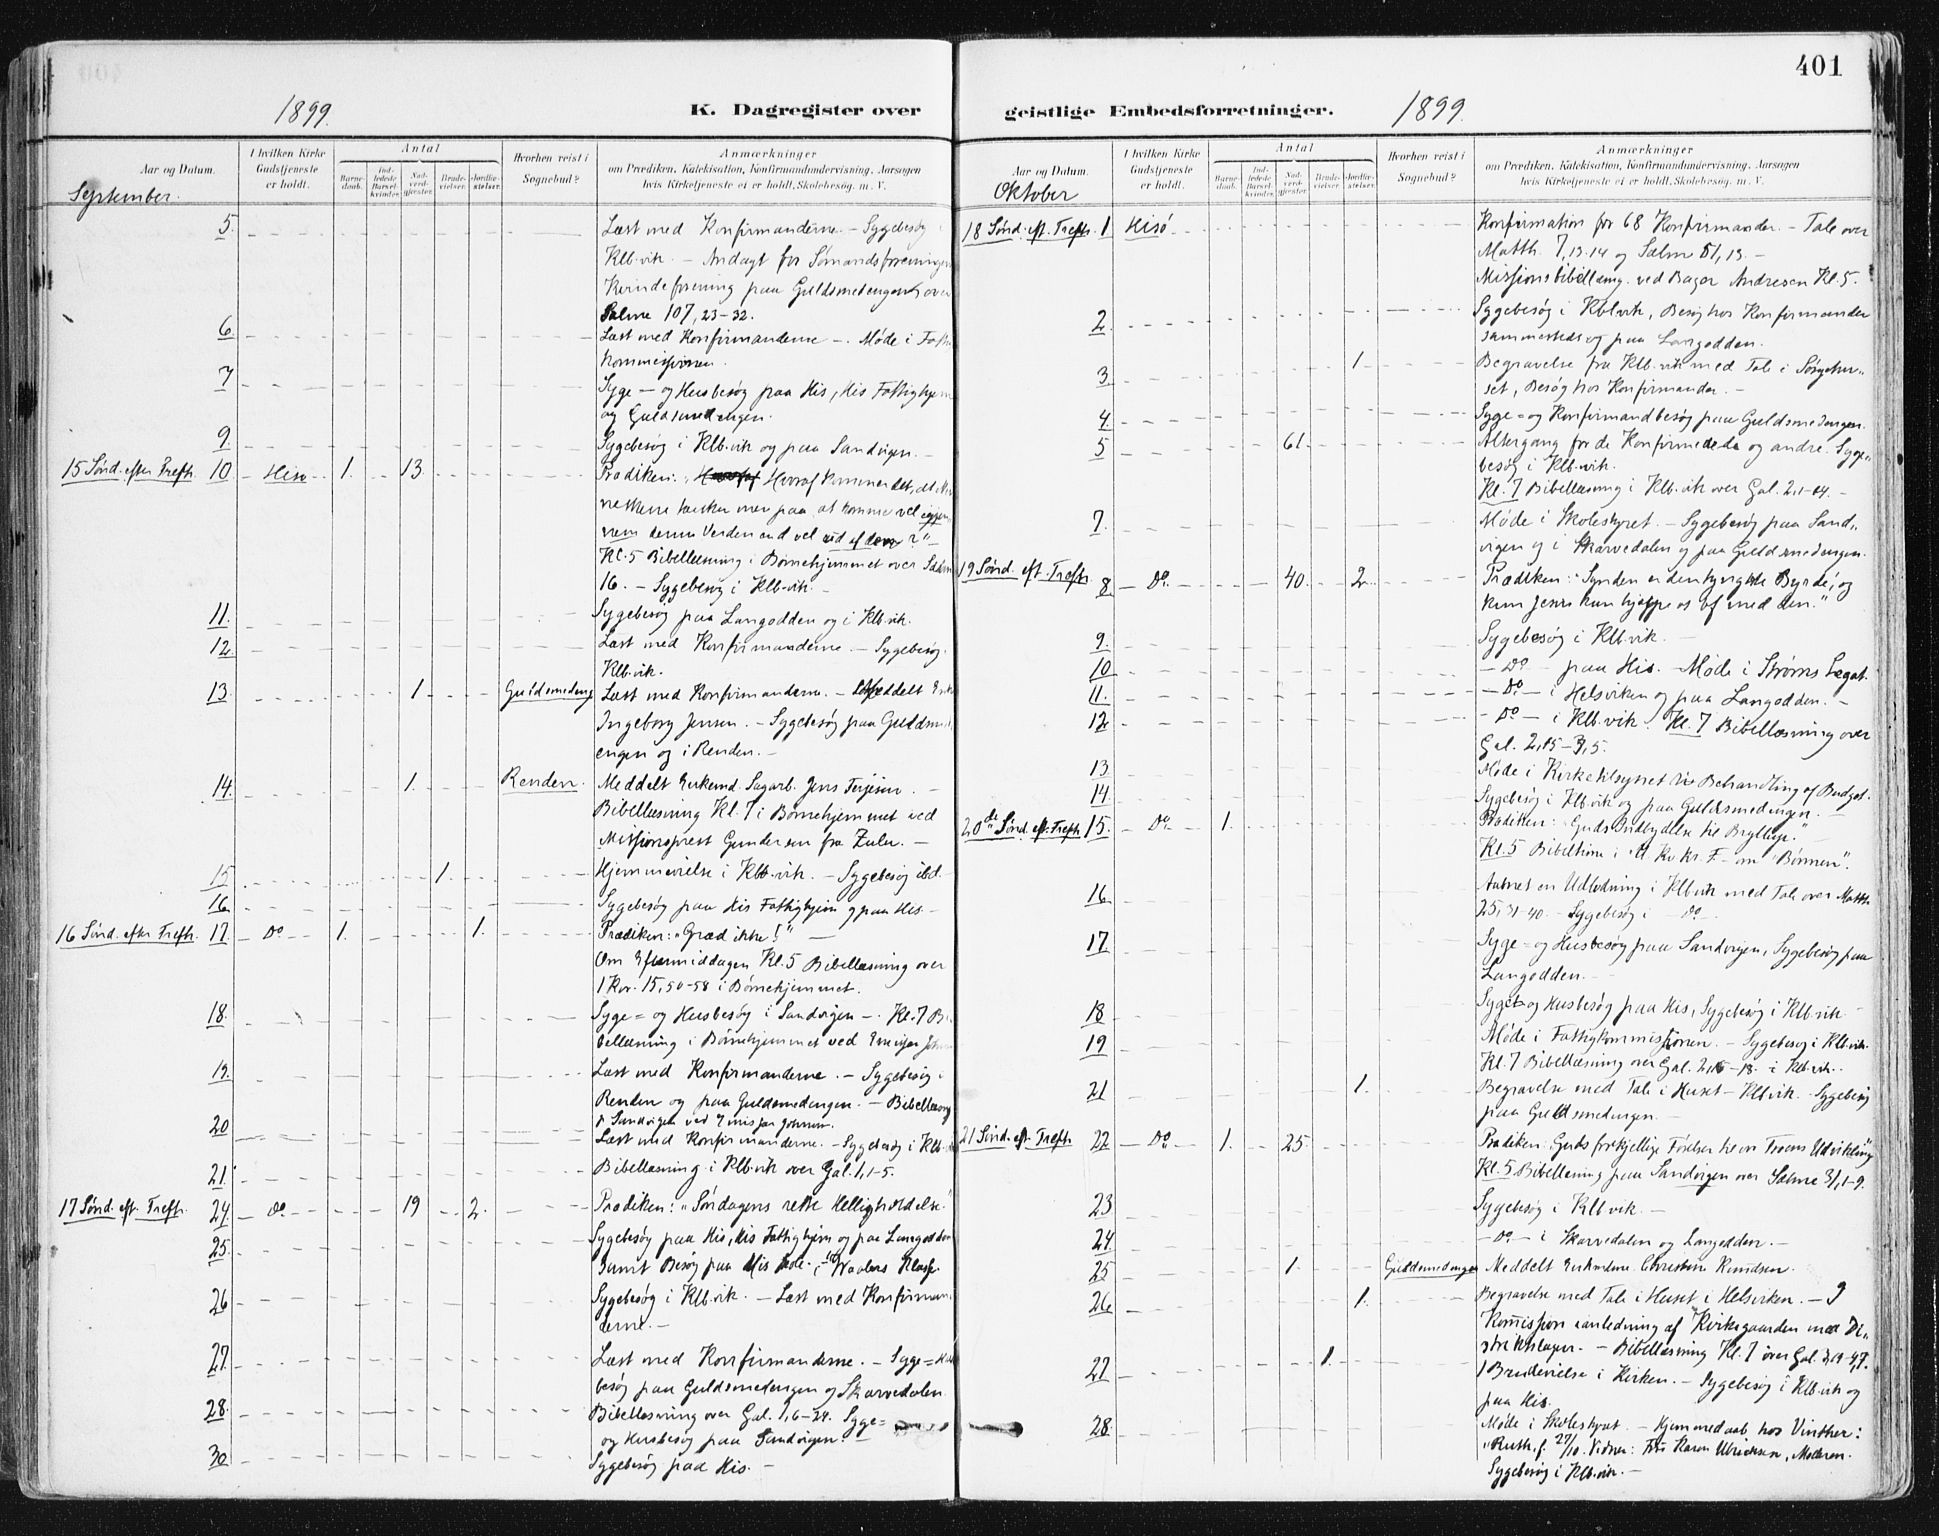 401
1899.
K. Dagregister over
geistlige Embedsforretninger.
1899.
Aar og Datum.
I hvilken Kirke Gudstjeneste er holdt.
Antal
Barnedaab.
Indledede Barselkvinder.
Nadverdgjester.
Brudevielser.
Jordfæstelser.
Hvorhen reist i Sognebud?
Anmærkninger
om Prædiken, Katekisation, Konfirmandundervisning, Aarsagen
hvis Kirketjeneste ei er holdt, Skolebesøg m. V.
September.
5. Læst med Konfirmanderne. – Sygebesøg i
Klb.vik. – Andagt for Sømandsforeningen
Kvindeforening paa Guldsmedengen over
Salme 107, 23-32.
6. Læst med Konfirmanderne –. Møde i
kommissionen.
7 Syge – og Husbesøg paa His, His Fattighjem
og Guldsmedengen.
9. Sygebesøg i Klb.vik og paa Sandvigen. –
15 Sønd. efter Trefh. 10 Hisø 1. 13. Prædiken: „Hvoraf kommer det, at
neskene tænker mer paa at komme vel igjen„
nem denne Verden end vel ud af den?" –
Kl. 5 Bibellæsning i Børnehjemmet over Salme
16. – Sygebesøg i Klb.vik. –
11. Sygebesøg paa Langodden og i Klb.vik.
12. Læst med Konfirmanderne. – Sygebesøg.
Klb.vik.
13. 1 Guldsmedeng Læst med Konfirmanderne. – Meddelt Enke
Ingeborg Jensen. – Sygebesøg paa Guldsmed
engen og i Renden. –
14. 1. Renden. Meddelt Enkemd. Sagarb. Jens Terjesen. –
Bibellæsning Kl. 7 i Børnehjemmet ved
Missionsprest Gundersen fra Zulu. –
15 1. Hjemmevielse i Klb.vik. – Sygebesøg ibd.
16 Sygebesøg paa His Fattighjem og paa His. –
16 Sønd. efter Trefh. 17. Do 1. 1. Prædiken: „Græd ikke!" –
Om Eftermiddagen Kl. 5 Bibellæsning over
1 Kor. 15, 50-58 i Børnehjemmet.
18. Syge = og Husbesøg i Sandvigen –. Kl. 7 Bi
bellæsning i Børnehjemmet ved Emissær
19. Læst med Konfirmanderne. – Sygebesøg i
Renden og paa Guldsmedengen. – Bibellæsning
i Sandvigen ved Emissær
20 Læst med Konfirmanderne. – Sygebesøg i Klb.
Bibellæsning i Klb.vik over Gal. 1, 1-5.
21.
17 Sønd. eft. Trefh. 24. Do. 19 2. Prædiken: „Søndagens rette Helligholdelse."
25. Sygebesøg paa His, His Fattighjem og paa Langodden
Samt Besøg paa His Skole. i Waalers Klasse.
26 Sygebesøg i Klb.vik. – Læst med Konfirman
derne. –
27. Læst med Konfirmanderne. – Syge = Hus
besøg paa Guldsmedengen og Skarvedalen
28. Bibellæsning over Gal. 1, 6-24. Syge =
og Husbesøg paa Sandvigen. –
30 Sygebesøg paa His. –
Aar og Datum.
I hvilken Kirke Gudstjeneste er holdt.
Antal
Barnedaab.
Indledede Barselkvinder.
Nadverdgjester.
Brudevielser.
Jordfæstelser.
Hvorhen reist i Sognebud?
Anmærkninger
om Prædiken, Katekisation, Konfirmandundervisning, Aarsagen
hvis Kirketjeneste ei er holdt, Skolebesøg m. V.
Oktober
18 Sønd. eft. Trefh. 1 Hisø Konfirmation for 68 Konfirmander. – Tale over
Matth. 7, 13.14 og Salme 51, 13. –
Missionsbibellæsng. ved Bager Andresen Kl. 5.
2. Sygebesøg i Klb.vik, Besøg hos Konfirmander
sammesteds og paa Langodden.
3. 1. Begravelse fra Klb.vik med Tale i Sørgehu„
set, Besøg hos Konfirmander. –
4. Syge = og Konfirmandbesøg paa Guldsmedengen.
5 61. Altergang for de Konfirmerede og andre. Syge„
besøg i Klb.vik.
Kl. 7 Bibellæsning i Klb.vik over Gal. 2, 1-14. –
7. Møde i Skolestyret. – Sygebesøg paa Sand„
vigen og i Skarvedalen og paa Guldsmedengen.
19 Sønd. eft. Trefh. 8. Do. 40. 2. Prædiken: „Synden er den tyngste Byrde, og
kun Jesus kan hjelpe os af med den."
9. Sygebesøg i Klb.vik. –
10 – Do – paa His. – Møde i Strøms Legat.
11. – Do – i Helsviken og paa Langodden. –
12 – Do – i Klb.vik. Kl. 7 Bibellæsning over
Gal. 2, 15–3, 5.
13 Møde i Kirketilsynet Behandling af Budget.
14. Sygebesøg i Klb.vik og paa Guldsmedengen. –
20de Sønd. eft. Trefh. 15. Do 1. Prædiken: „Guds Indbydelse til Bryllup."
Kl. 5 Bibeltime i U. K. F. – om „Bønnen".
16 Aabnet en Udlodning i Klb.vik med Tale over Matth
25, 31-40. – Sygebesøg i – Do –
17. Syge – og Husbesøg paa Sandvigen, Sygebesøg paa
Langodden. –
18 Syge- og Husbesøg paa His, Sygebesøg i Klb.vik –
19 Møde i Fattigkommissionen. – Sygebesøg i Klb.vik.
Kl. 7 Bibellæsning over Gal. – 18. i Klb.vik.
21 1. Begravelse med Tale i Huset – Klb.vik. Sygebesøg
paa Guldsmedengen. –
21 Sønd. eft. Trefh. 22 Do 1. 25. Prædiken: Guds forskjellige Førelser til en Troens Udvikling"
Kl. 5 Bibellæsning paa Sandvigen over Salme 31, 1-9.
23 Sygebesøg i Klb.vik. –
24. – Do – i Skarvedalen og Langodden. –
25 1. Guldsmedengen Meddelt Christine Knudsen.
26 1. Begravelse med Tale i Huset i Helsviken. – I
Kommission i anledning af Kirkegaarden med Di„
striktslægen. – Bibellæsning Kl. 7 over Gal.
27 1. 1 Brudevielse i Kirken. – Sygebesøg i Klb.vik og
paa His.
28. Møde i Skolestyret – Hjemmedaab hos Vinther:
„Ruth f. 27/10. Vidner: Karen Ulricksen, Moderen.
Sygebesøg i Klb.vik. –